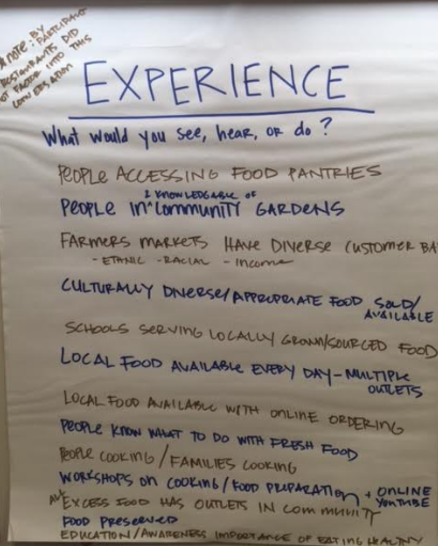 NOTE: BY PARTICIPANT
RESTAURANTS DID
NOT FACTOR INTO THIS
CONVERSATION
EXPERIENCE
What would you see, hear, or do?
PEOPLE ACCESSING FOOD PANTRIES
& KNOWLEDGABLE OF
PEOPLE IN ^ COMMUNITY GARDENS
FARMERS MARKETS HAVE DIVERSE CUSTOMER BA
- ETHNIC - RACIAL - INCOME
CULTURALLY DIVERSE/APPROPRIATE FOOD SOLD/
AVAILABLE
SCHOOLS SERVING LOCALLY GROWN/SOURCED FOOD
LOCAL FOOD AVAILABLE EVERY DAY - MULTIPLE
OUTLETS
LOCAL FOOD AVAILABLE WITH ONLINE ORDERING
PEOPLE KNOW WHAT TO DO WITH FRESH FOOD
PEOPLE COOKING/FAMILIES COOKING
WORKSHOPS ON COOKING/FOOD PREPARATION + ONLINE
YOUTUBE
EXCESS FOOD HAS OUTLETS IN COMMUNITY
FOOD PRESERVED
EDUCATION/AWARENESS IMPORTANCE OF EATING HEALTHY